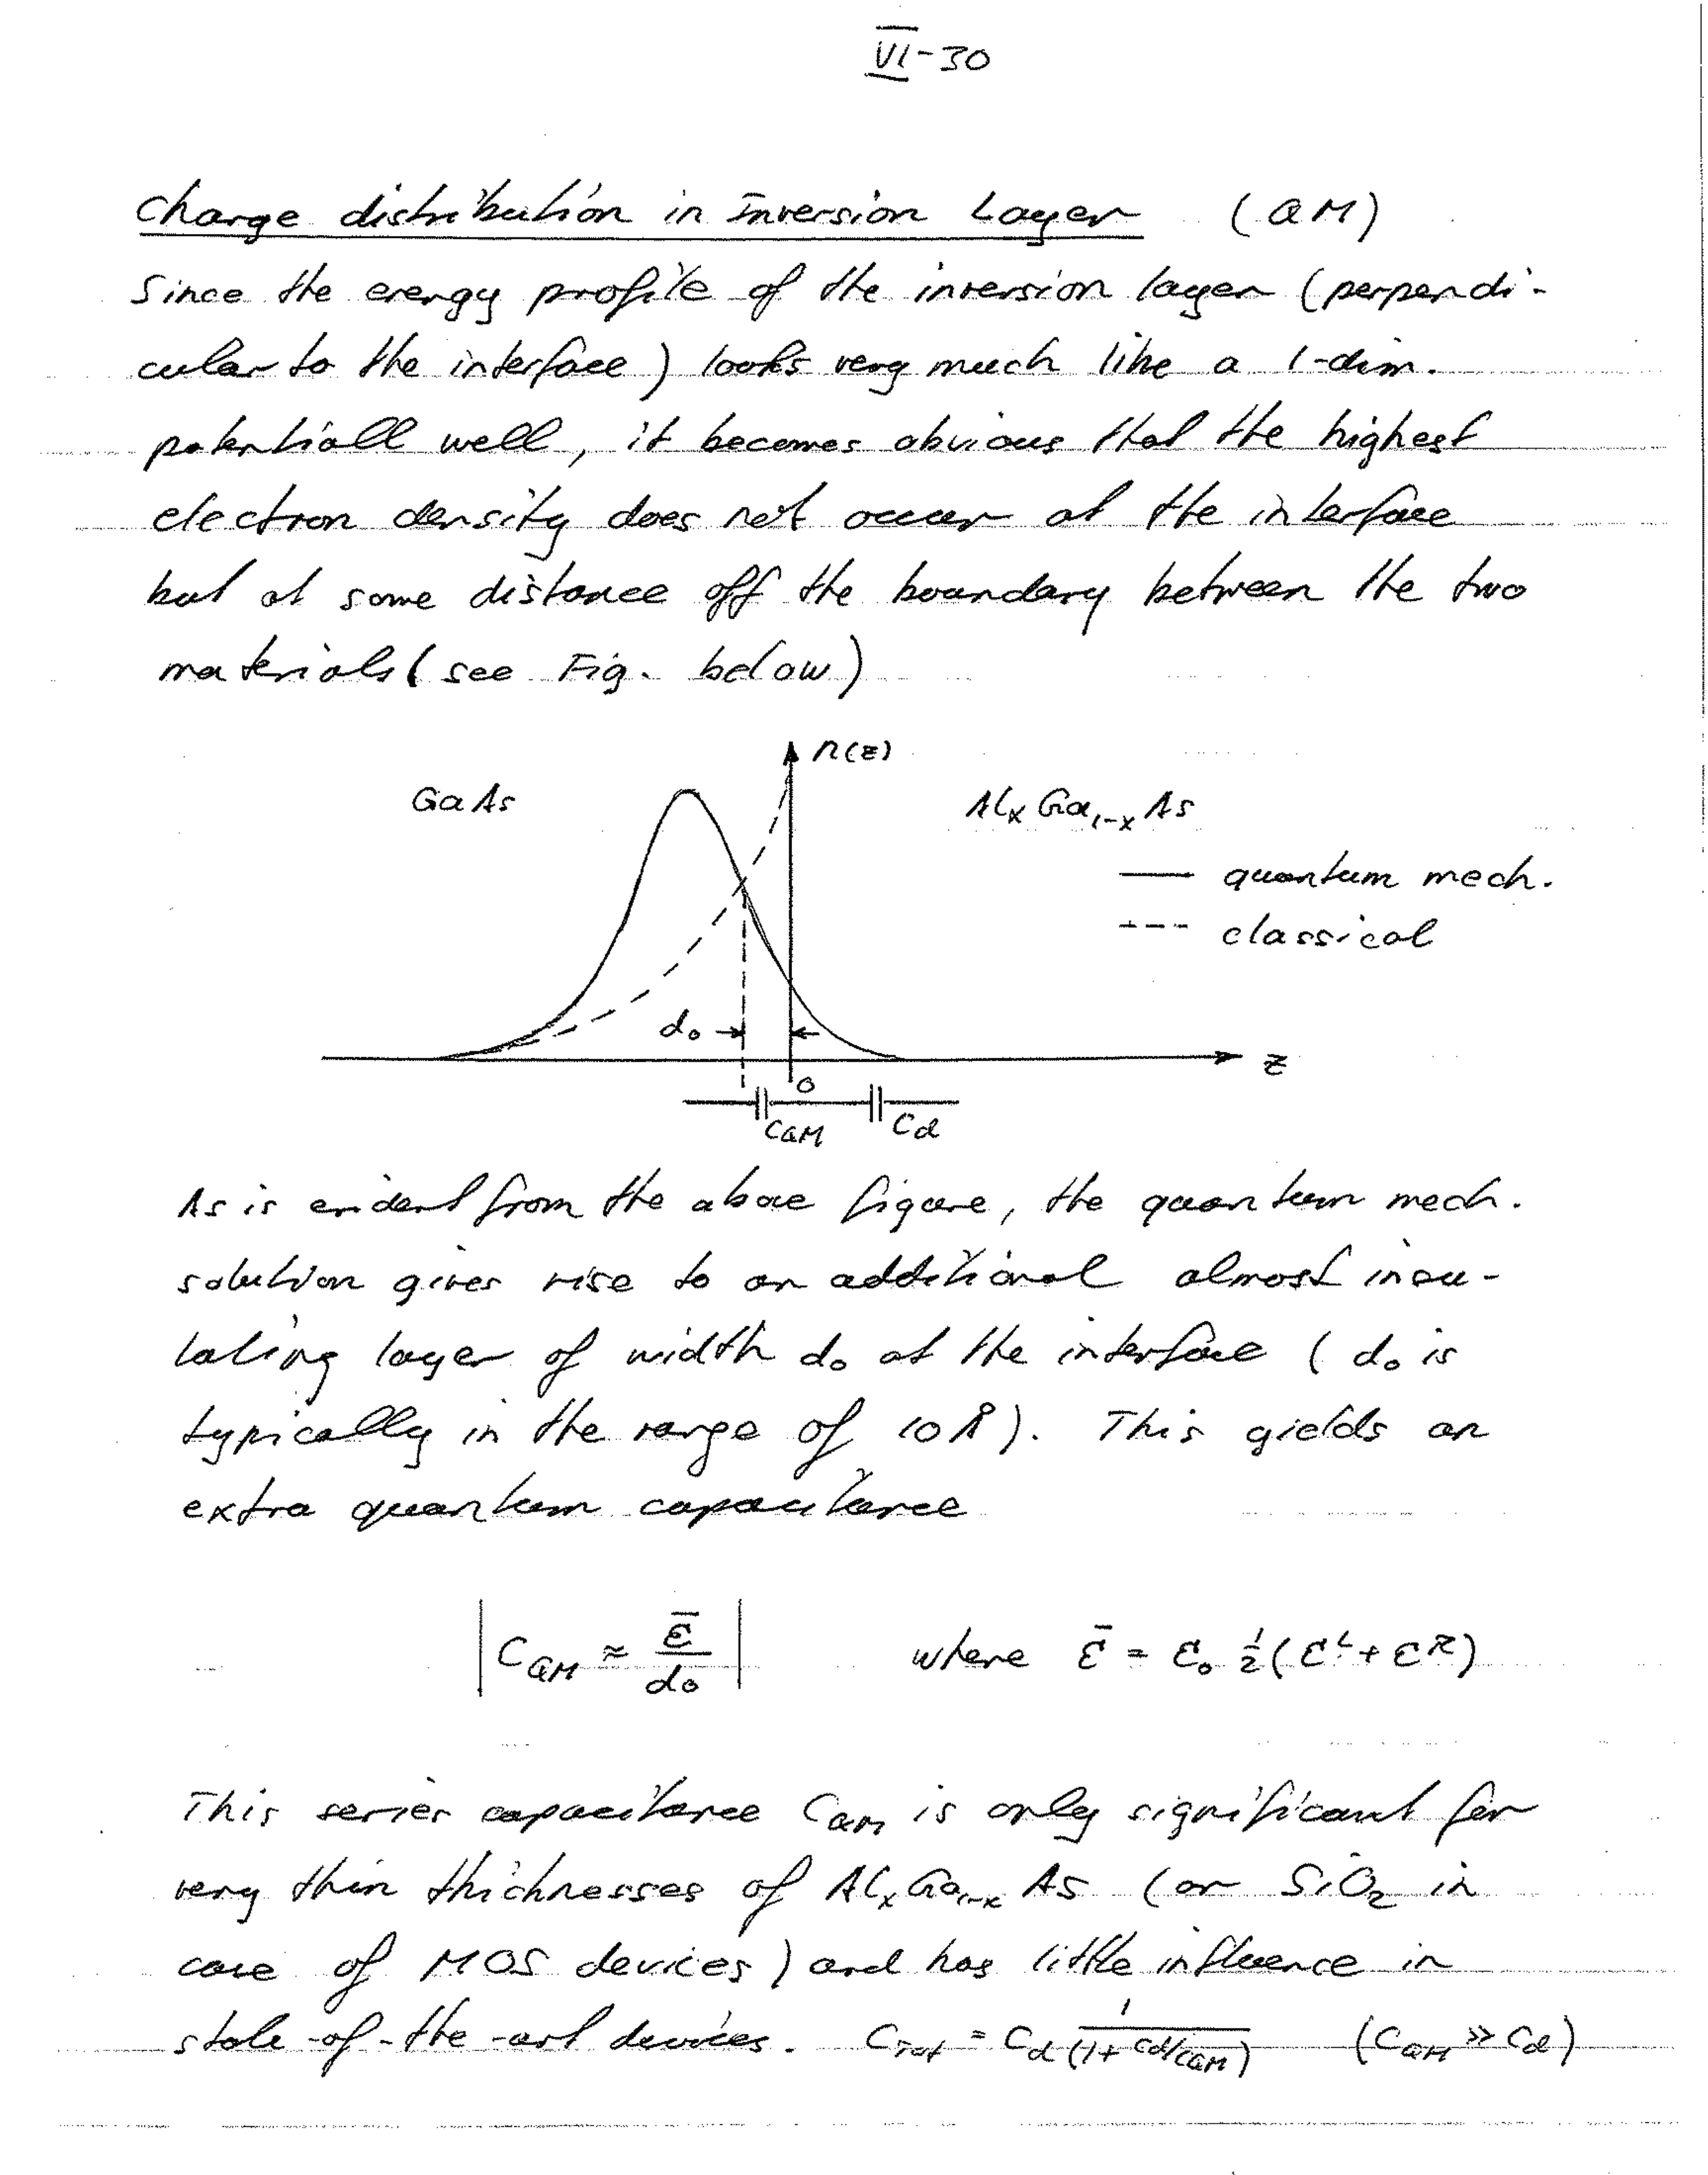 VI-30
Charge distribution in Inversion Layer (QM)
Since the energy profile of the inversion layer (perpendi-
cular to the interface) looks very much like a 1-dim.
potentiall well, it becomes obvious that the highest
electron density does not occur at the interface
but at some distance off the boundary between the two
materials (see Fig. below)
n(z)
GaAs AlxGa1-xAs
quantum mech.
classical
d₀
z
0
CQM Cd
As is evident from the above figure, the quantum mech.
solution gives rise to an additional almost insu-
lating layer of width d₀ at the interface (d₀ is
typically in the range of 10 Å). This yields an
extra quantum capacitance
| CQM ≈ ε̄/d₀ | where ε̄ = ε₀ ½(εᴸ + εᴿ)
This series capacitance CQM is only significant for
very thin thicknesses of AlxGa1-xAs (or SiO₂ in
case of MOS devices) and has little influence in
state-of-the-art devices. CTot = Cd 1/(1+Cd/CQM) (CQM ≫ Cd)